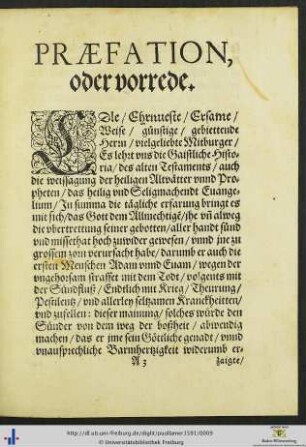 PRÆFATION,
oder vorrede.
EDle / Ehrnueste / Ersame /
Weise / günstige / gebiettende
Herrn / vielgeliebte Mitburger /
Es lehrt vns die Gaistliche Histo-
ria / des alten Testaments / auch
die weissagung der heiligen Altvätter vnnd Pro-
pheten / das heilig vnd Seligmachendt Euange-
lium / In summa die tägliche erfarung bringt es
mit sich / das Gott dem Allmechtigē / ihe vñ alweg
die vbertrettung seiner gebotten / aller handt sünd
vnd missethat hoch zuwider gewesen / vnnd jne zu
grossem zorn verursacht habe / darumb er auch die
ersten Menschen Adam vnnd Euam / wegen der
vngehorsam straffet mit dem Todt / volgents mit
der Sündfluß / Endtlich mit Krieg / Theurung /
Pestilentz / vnd allerley seltzamen Kranckheitten /
vnd zufellen: dieser mainung / solches würde den
Sünder von dem weg der boßheit / abwendig
machen / das er jme sein Göttliche genadt / vnnd
vnaussprechliche Barmhertzigkeit widerumb er-
A 3 zaigte /
http://dl.ub.uni-freiburg.de/diglit/pudlianer1591/0009
© Universitätsbibliothek Freiburg